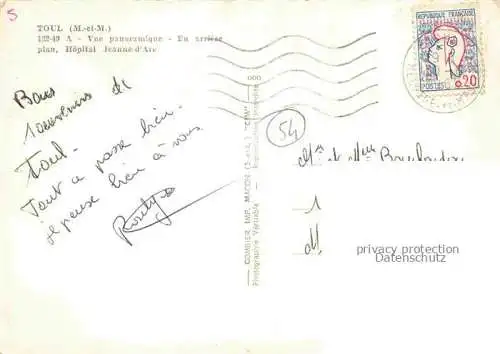 5
TOUL (M.-et-M.)
122-49 A - Vue panoramique - En arrière
plan, Hôpital Jeanne-d'Arc
Bons
souvenirs de
Toul.
Tout a passé bien.
je pense bien à vous
REPUBLIQUE FRANÇAISE
POSTES 0,20
54
COMBIER IMP. MACON (S.-et-L.) "CIM"
Photographie Véritable -
1
M
privacy protection
Datenschutz